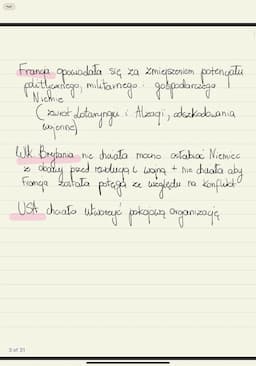 Francja opowiadała się za zmniejszeniem potencjału
politycznego, militarnego i gospodarczego
Niemiec
(zwrot Lotaryngii i Alzacji, odszkodowania
wojenne)
Wlk. Brytania nie chciała mocno osłabiać Niemiec
z obawy przed rewolucją i wojną + nie chciała aby
Francja została potęgą ze względu na konflikt
USA chciało utworzyć pokojową organizację
3 of 31